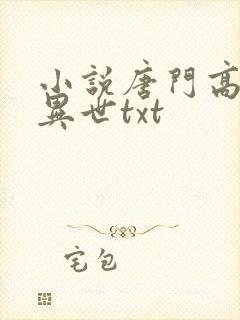 小說唐門高
異世txt
宅包